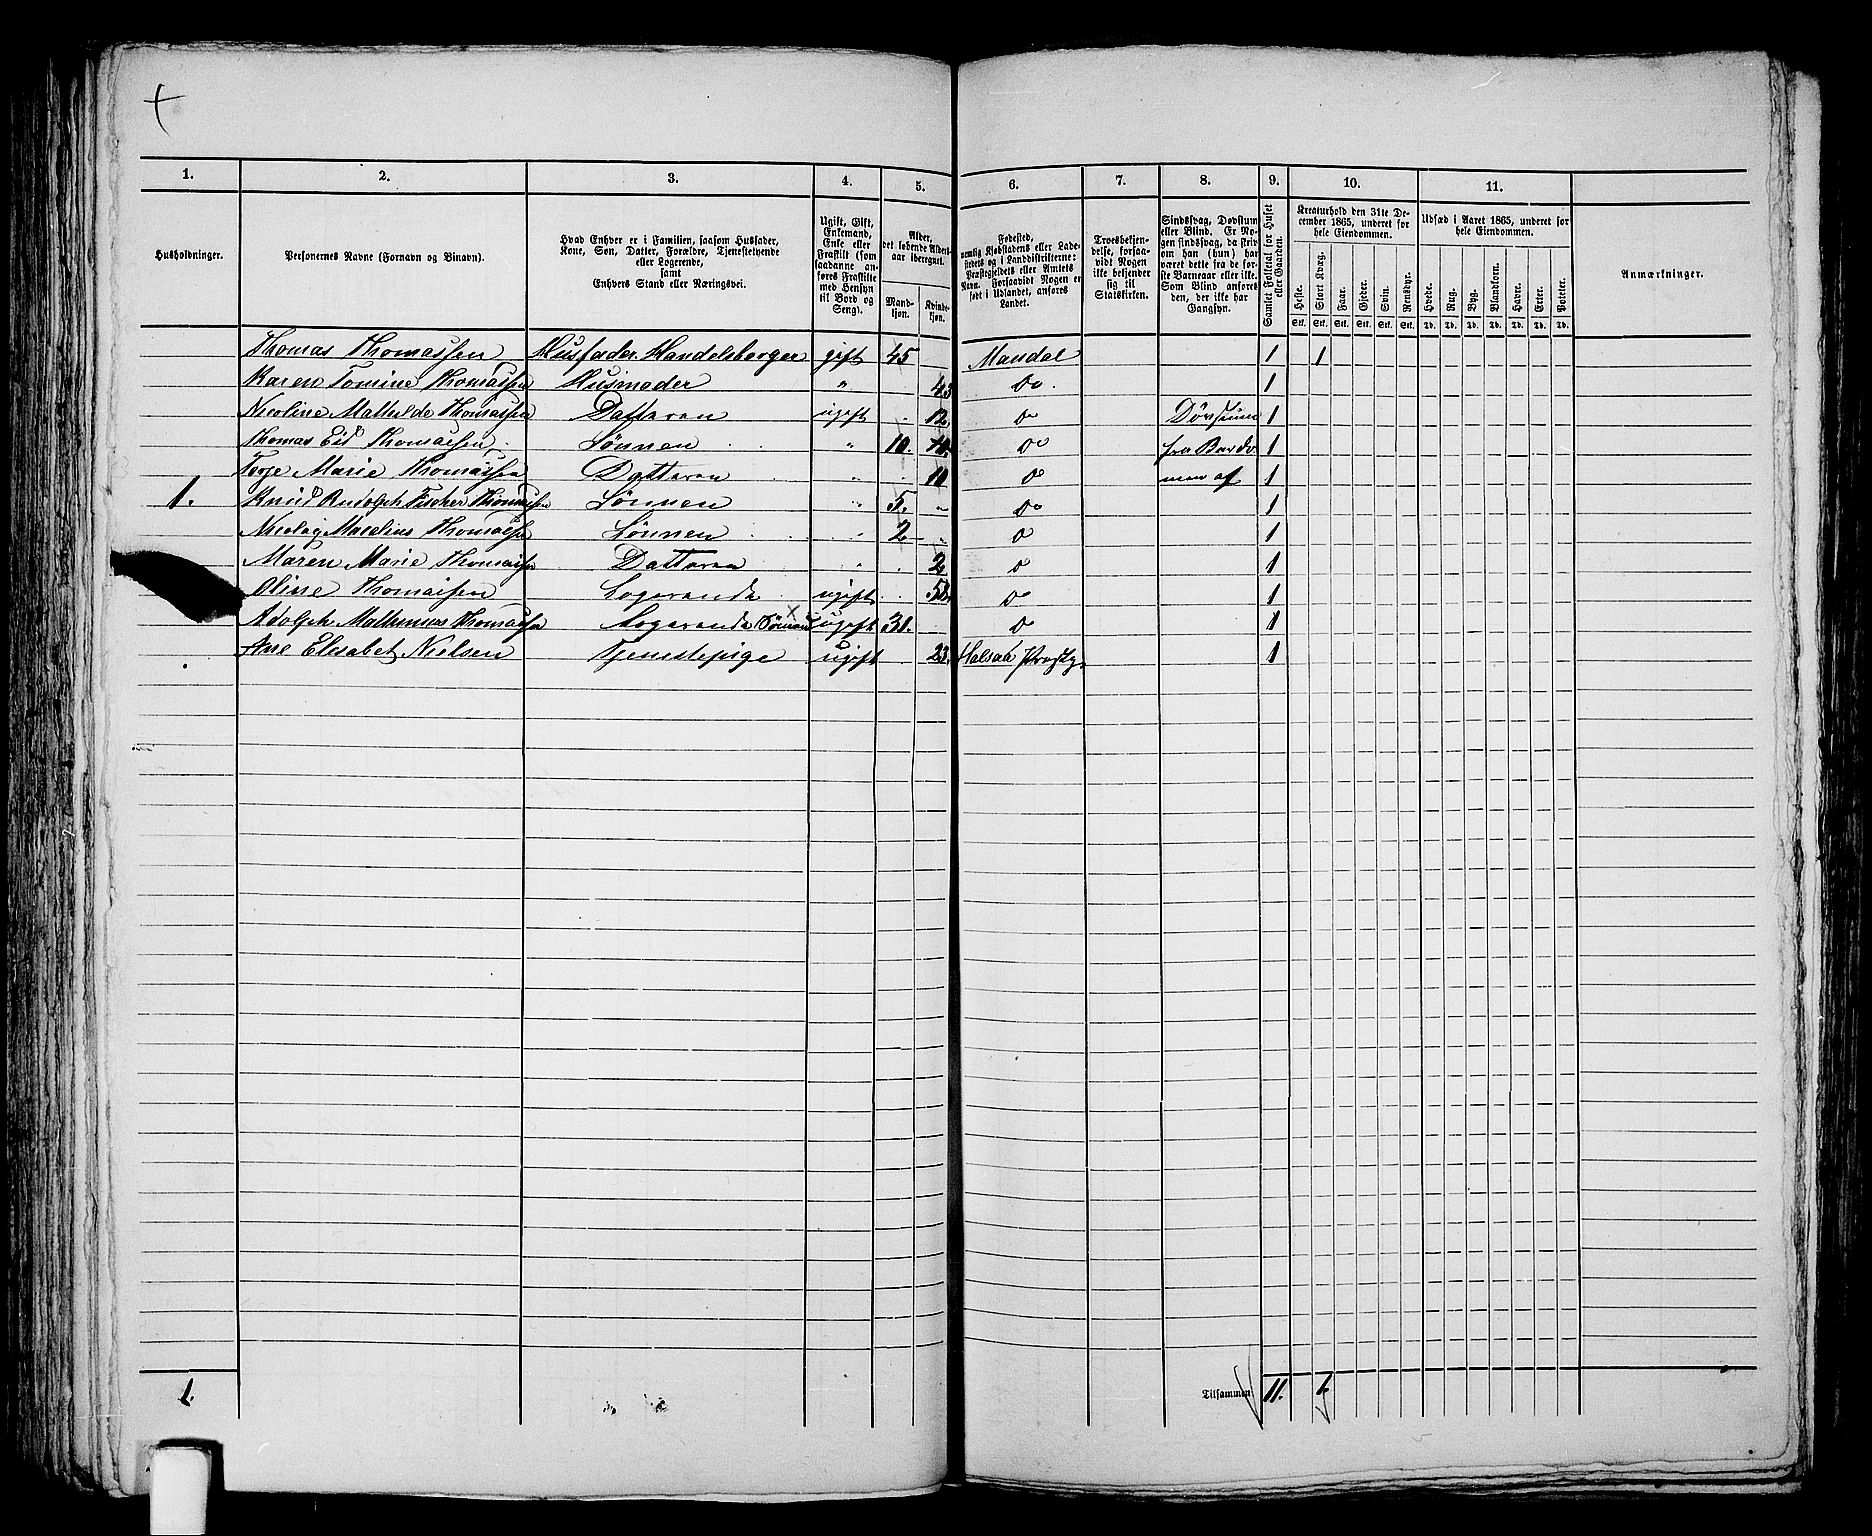 1. 2. 3. 4. 5. 6. 7. 8. 9. 10. 11.
Husholdninger.
Personernes Navne (Fornavn og Binavn).
Hvad Enhver er i Familien, saasom Husfader,
Kone, Søn, Datter, Forældre, Tjenestetyende
eller Logerende,
samt
Enhvers Stand eller Næringsvei.
Ugift, Gift,
Enkemand,
Enke eller
Fraskilt (som
saadanne an-
føres Fraskilte
med Hensyn
til Bord og
Seng).
Alder,
det løbende Alders-
aar iberegnet.
Mand-
kjøn.
Kvinde-
kjøn.
Fødested,
nemlig Kjøbstadens eller Lade-
stedets og i Landdistrikterne:
Præstegjeldets eller Amtets
Navn. Forsaavidt Nogen er
født i Udlandet, anføres
Landet.
Troesbekjen-
delse, forsaa-
vidt Nogen
ikke bekjender
sig til
Statskirken.
Sindssvag, Døvstum
eller Blind. Er No-
gen sindssvag, da skriv
om han (hun) har
været dette fra de før-
ste Barneaar eller ikke.
Som Blind anføres
den, der ikke har
Gangsyn.
Samlet Folketal for Huset
eller Gaarden.
Kreaturhold den 31te De-
cember 1865, underet for
hele Eiendommen.
Heste. Stort Kvæg. Faar. Gjeder. Svin. Rensdyr.
Stk. Stk. Stk. Stk. Stk. Stk.
Udsæd i Aaret 1865, underet for
hele Eiendommen.
Hvede. Rug. Byg. Blandkorn. Havre. Erter. Poteter.
Td. Td. Td. Td. Td. Td. Td.
Anmærkninger.
Thomas Thomassen Husfader. Handelsborger gift 45 Mandal 1 1
Karen Tomine Thomassen Husmoder " 43 Do. 1
Nicoline Mathilde Thomassen Datteren ugift 12. Do Døvstum 1
Thomas Eid Thomassen Sønnen " 10. 10. Do fra Bardo 1
Terje Marie Thomassen Datteren 10 Do men af 1
1. Knud Rudolph Fischer Thomassen Sønnen " 5. Do 1
Nicolay Marelius Thomassen Sønnen 2 Do 1
Maren Marie Thomassen Datteren " 2 Do 1
Oline Thomassen Logerende ugift 58. Do 1
Adolph Mathinius Thomassen Logerende Sømand ugift 31. Do 1
Ane Elisabet Nielsen Tjenestepige ugift 23. Halsaa Prstgj. 1
1. Tilsammen 11. 1.